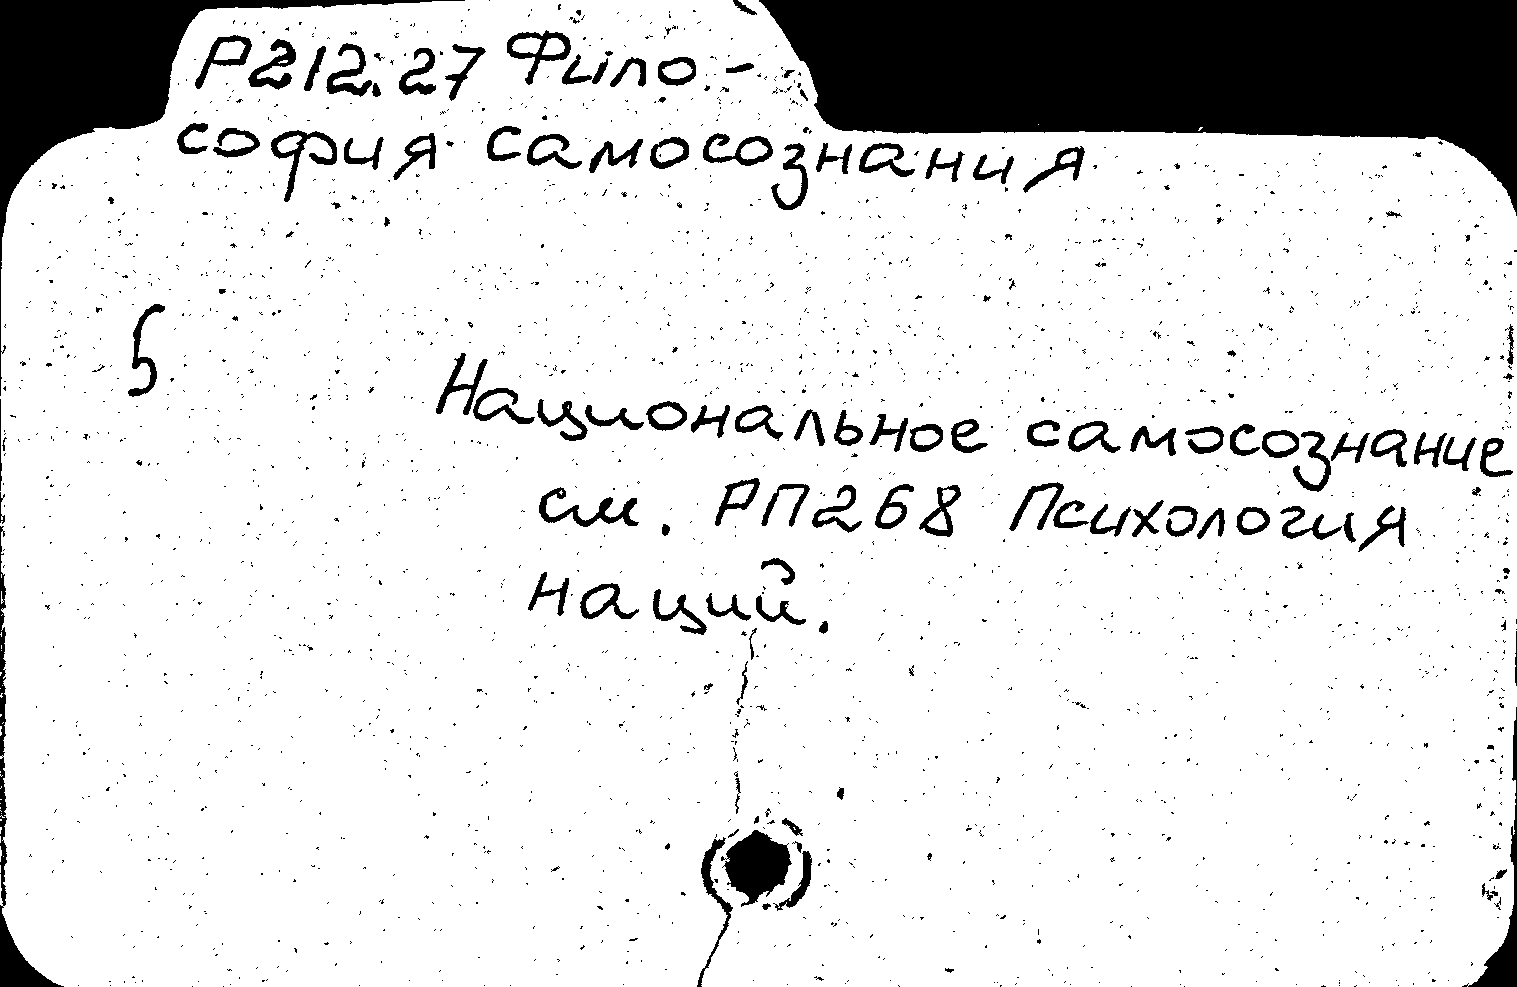 Р212.27 Фило-
софия самосознания
5
Национальное самосознание
см. РП268 Психология
наций.